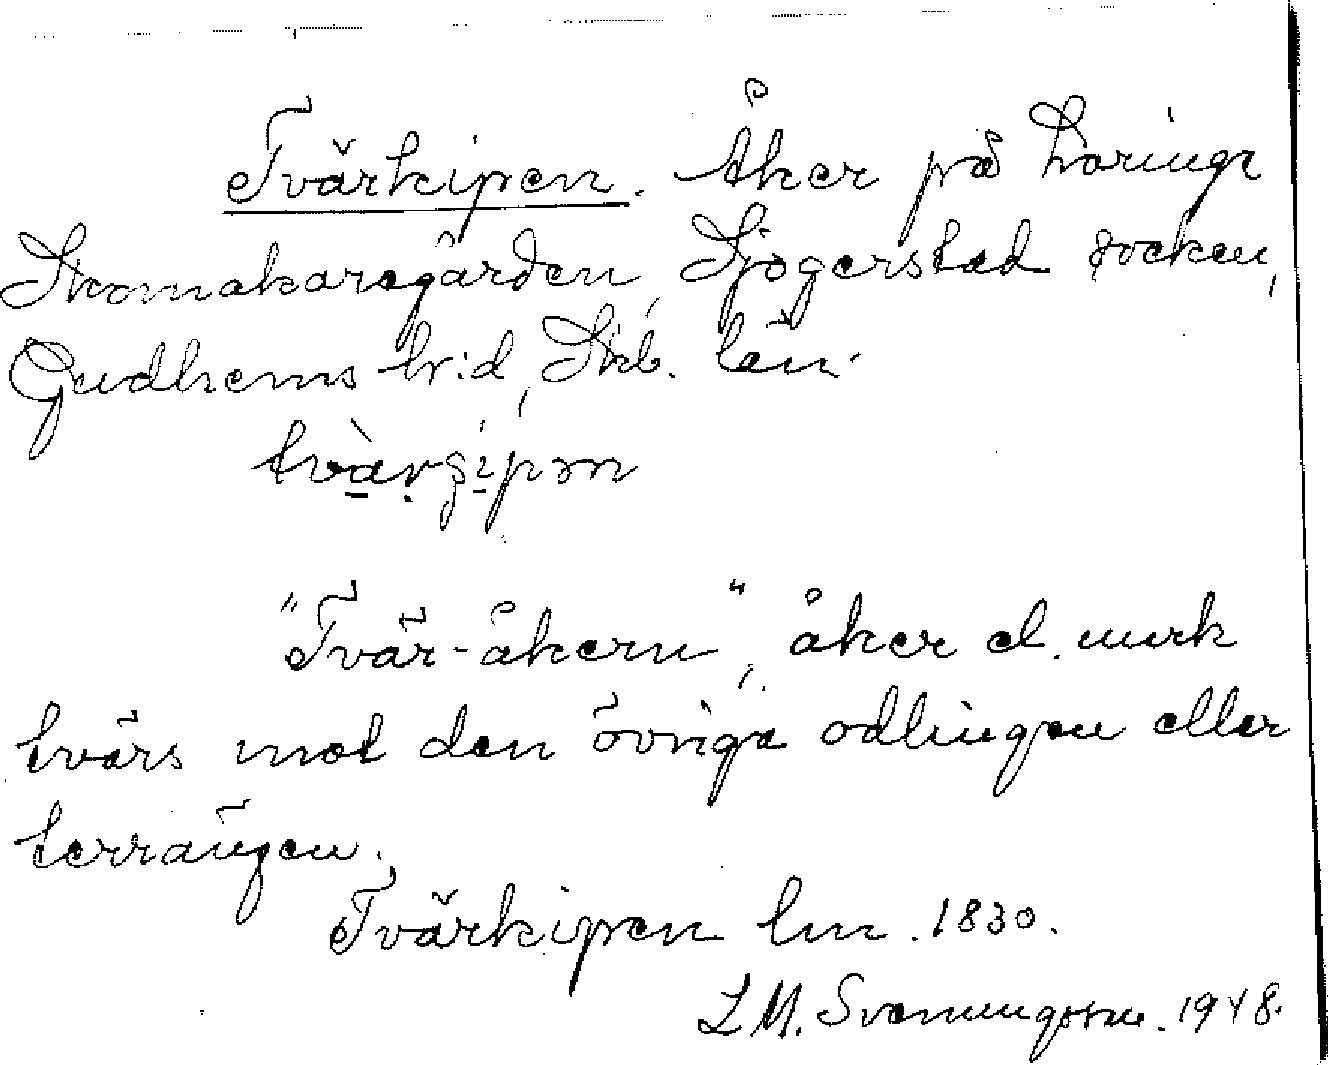 Tvärkipen. Åker på Horinge
Skomakaregården, Sjögerstad socken,
Gudhems hr:d, Skb. län.

"Tvär-åkern", åker el. mark
tvärs mot den övriga odlingen eller
terrängen.
Tvärkipen lm. 1830.
L M. Svenungsson. 1948.